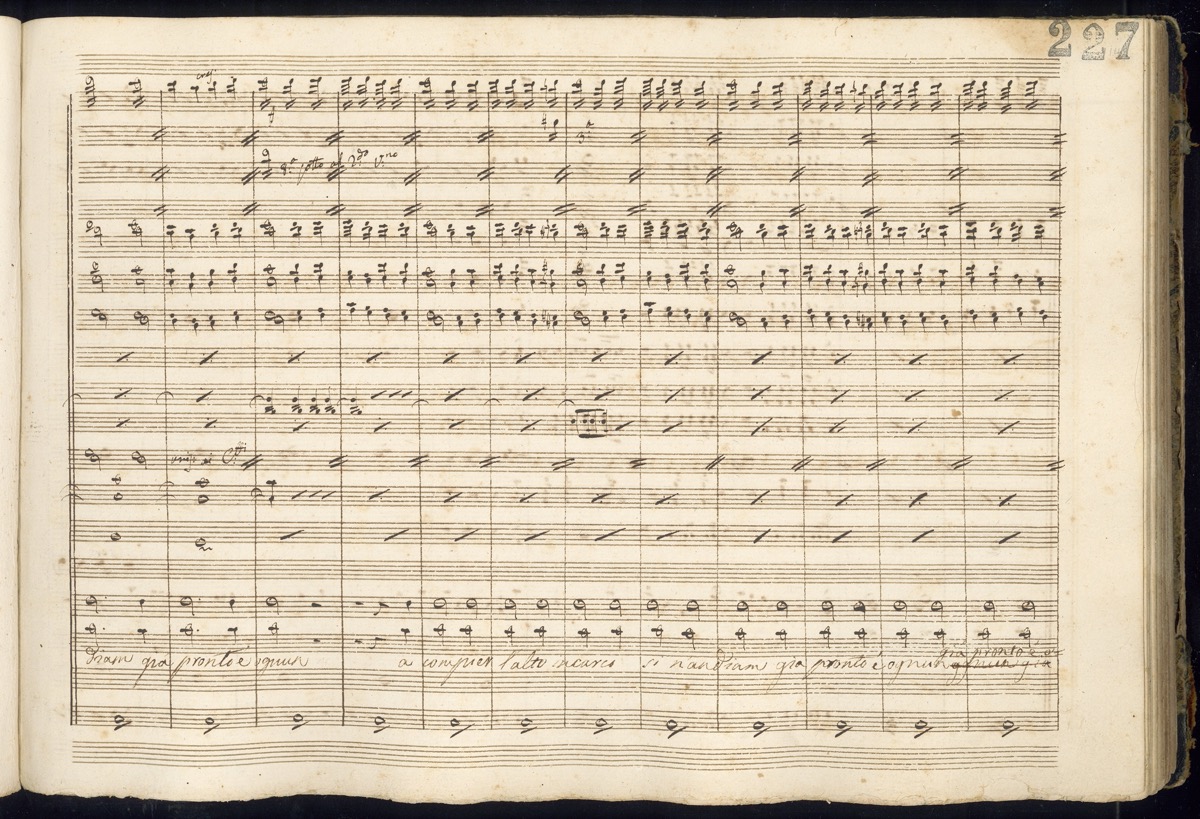 227
3ª
8ª sotto al 2do Vno
unis
diam gia pronto è ognun a compier l'alto incarco si nandiam gia pronto è ognun gia pronto è o
ognun gia